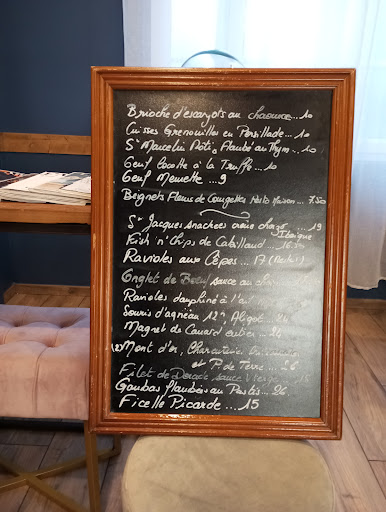 Brioche d'escargots au chaource...10
Cuisses Grenouilles en Persillade...10
St Marcelin Rôti, Flambé au Thym...10
Oeuf Cocotte à la Truffe...10
Oeuf Meurette...9
Beignets Fleurs de Courgettes Maison...7.50
St Jacques snackées crème chorizo...19
Ibérique
Fish 'n' Chips de Cabillaud...16
Ravioles aux Cèpes...17
Onglet de Boeuf sauce au
Ravioles dauphiné à l'ail
Souris d'agneau 12h, Aligot...24
Magret de Canard entier...24
Mont d'or, Charcuterie
et P. de Terre...
Filet de Dorade sauce Vierge...
Gambas flambées au Pastis...26
Ficelle Picarde...15